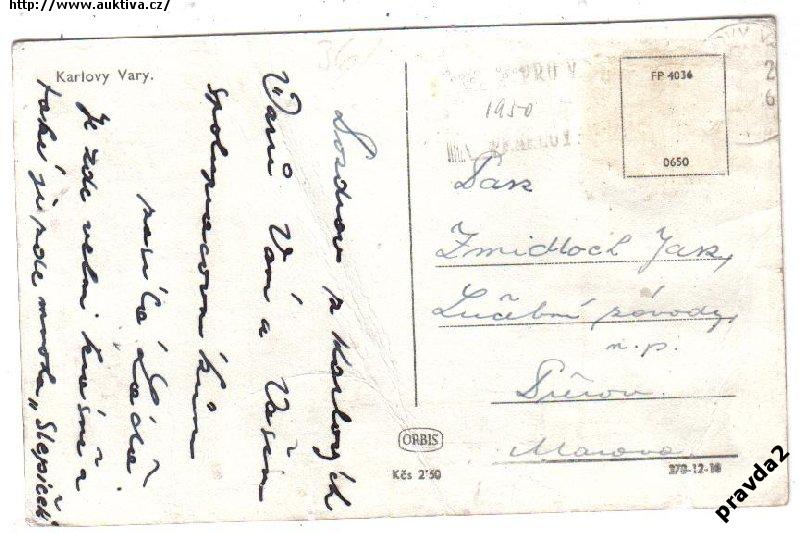 http://www.auktiva.cz/
Karlovy Vary.
Pozdrav z Karlových
Varů Vám a Vašim
spolupracovníkům
posílá Láďa
Je zde velmi krásně a
také je zde mnoho „Slepiček“
1950
FP 4036
D650
Pan
Jar,
Lučební závody,
n. p.
Přerov
Morava.
ORBIS
Kčs 2'50
270-12-18
pravda2